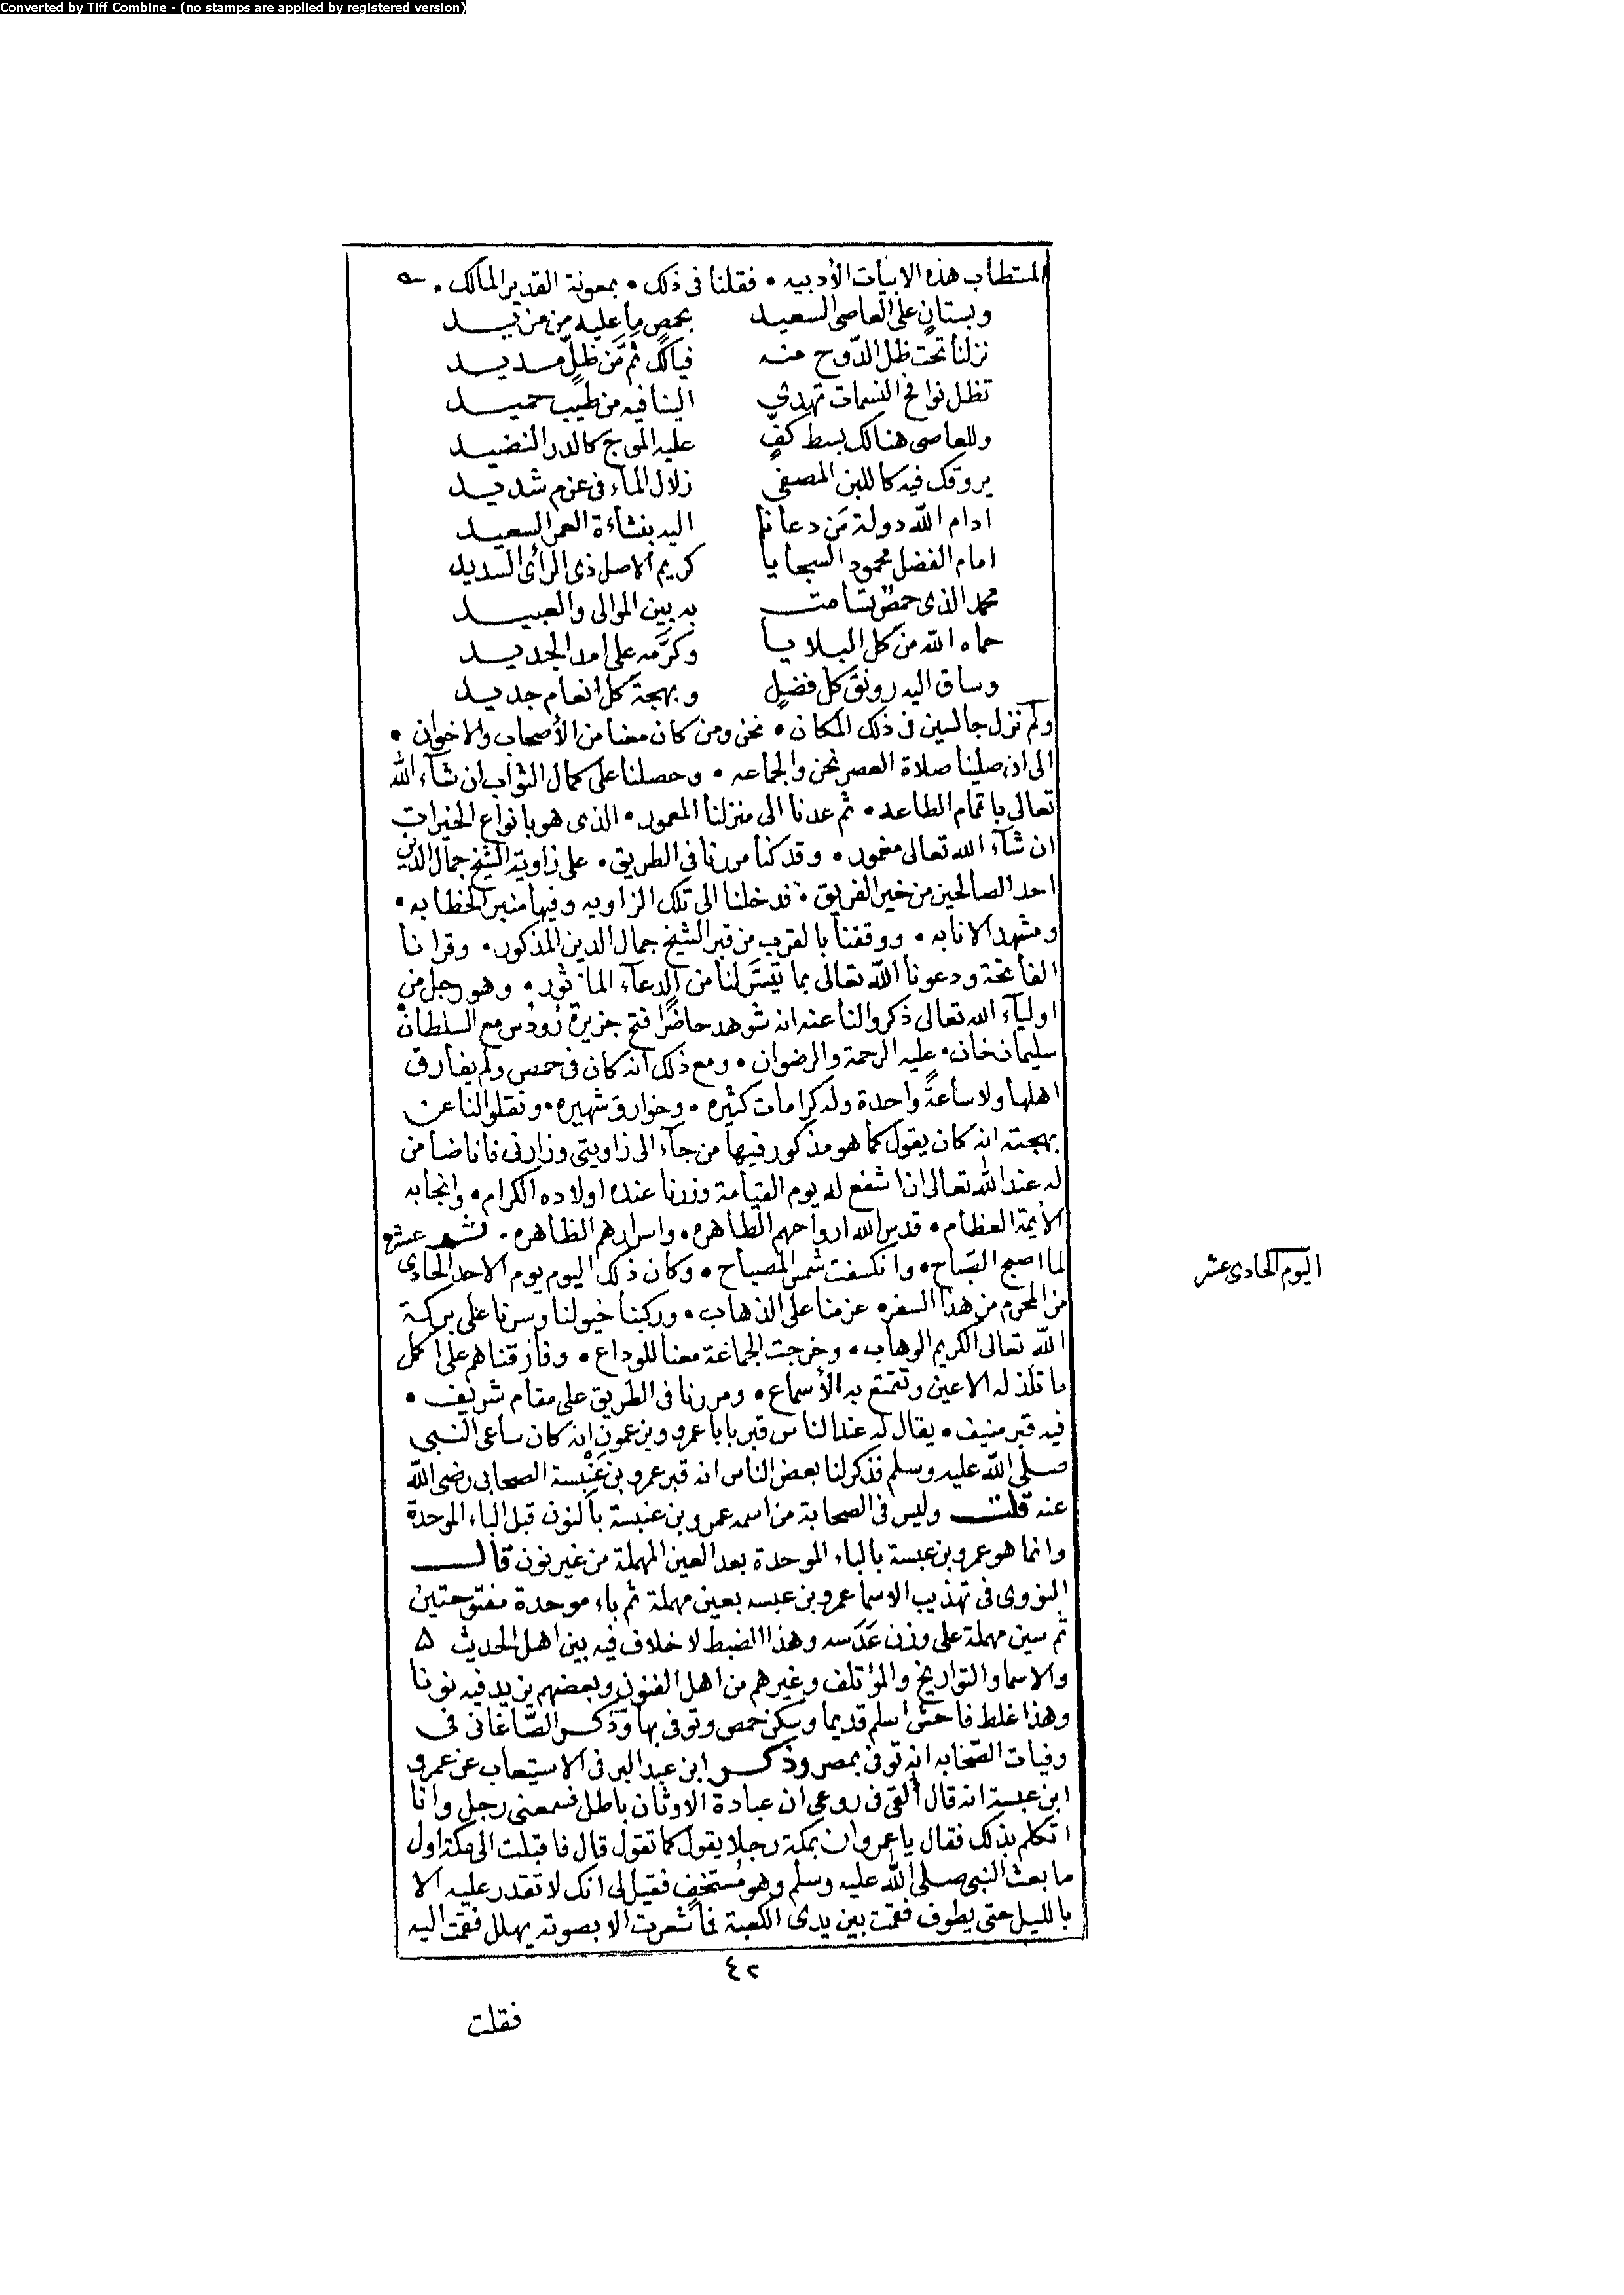 Converted by Tiff Combine - (no stamps are applied by registered version)
المستطاب هذه الابيات الأدبيه • فقلنا فى ذلك • بمعونة القدير المالك •
وبستانٍ على العاصى السعيد بحمصٍ ما عليه من مزيد
نزلنا تحت ظل الدّوح منه فيالك ثَمّ من ظلٍّ مديد
تظل نوافح النسمات تهدي الينا فيه من طيبٍ حميد
وللعاصى هنالك بسط كفٍّ عليه الموج كالدر النضيد
يروقك فيه كاللبن المصفى زلال الماء فى عزم شديد
ادام الله دولة مَن دعانا اليه بنشاءة العمر السعيد
امام الفضل محمود السجايا كريم الاصل ذى الرأى السديد
محمد الذى حمصٌ تسامت به بين الموالى والعبيد
حماه الله من كل البلايا وكرَّمه على امد الجديد
وساق اليه رونق كل فضلٍ وبهجة كل انعام جديد
ولم نزل جالسين فى ذلك المكان • نحن ومن كان معنا من الأصحاب والاخوان •
الى ان صلينا صلاة العصر نحن والجماعه • وحصلنا على كمال الثواب ان شآء الله
تعالى باتمام الطاعه • ثم عدنا الى منزلنا المعمور • الذى هو بانواع الخيرات
ان شآء الله تعالى مغمور • وقد كنا مررنا فى الطريق • على زاوية الشيخ جمال الدين
احد الصالحين من خير الفريق • فدخلنا الى تلك الزاويه وفيها منبر الخطابه •
ومشهد الانابه • ووقفنا بالقرب من قبر الشيخ جمال الدين المذكور • وقرانا
الفاتحة ودعونا الله تعالى بما تيسَّر لنا من الدعآء الماثور • وهو رجل من
اوليآء الله تعالى ذكروا لنا عنه انه شوهد حاضرًا فتح جزيرة رُودُس مع السلطان
سليمان خان • عليه الرحمة والرضوان • ومع ذلك انه كان فى حمص ولم يفارق
اهلها ولا ساعةً واحدة وله كرامات كثيره • وخوارق شهيره • ونقلوا لنا عن
بهجته انه كان يقول كما هو مذكور فيها من جآء الى زاويتى وزارنى فانا ضامن
له عند الله تعالى انا اشفع له يوم القيامة وزرنا عنده اولاده الكرام • وانجابه
الأيمة العظام • قدس الله ارواحهم الطاهره • واسرارهم الظاهره •
لما اصبح الصّباح • وانكسفت شمس المصباح • وكان ذلك اليوم يوم الاحد الحادى عشر
اليوم الحادى عشر
من المحرم من هذا السفر عزمنا على الذهاب • وركبنا خيولنا وسرنا على بركة
الله تعالى الكريم الوهاب • وخرجت الجماعة معنا للوداع • وفارقناهم على اكمل
ما تلذ له الاعين وتتمتع به الأسماع • ومررنا فى الطريق على مقام شريف •
فيه قبر منيف • يقال له عند الناس قبر بابا عمرو ويزعمون انه كان ساعى النبى
صلى الله عليه وسلم فذكر لنا بعض الناس انه قبر عمرو بن عَنْبسة الصحابى رضى الله
عنه قلت وليس فى الصحابة من اسمه عمرو بن عنبسة بالنون قبل الباء الموحدة
وانما هو عمرو بن عبسة بالباء الموحدة بعد العين المهملة من غير نون قال
النووى فى تهذيب الاسما عمرو بن عبسه بعين مهملة ثم باء موحدة مفتوحتين
ثم سين مهملة على وزن عَدَسه وهذا الضبط لا خلاف فيه بين اهل الحديث
والاسما والتواريخ والمؤتلف وغيرهم من اهل الفنون وبعضهم يزيد فيه نونا
وهذا غلط فاحش اسلم قديما وسكن حمص وتوفى بها وذكر الصّاغانى فى
وفيات الصّحابه انه توفى بمصر وذكر ابن عبد البر فى الاستيعاب عن عمرو
ابن عبسة انه قال أُلقى فى روعى ان عبادة الاوثان باطل فسمعنى رجل وانا
اتكلم بذلك فقال يا عمرو ان بمكة رجلا يقول كما تقول قال فاقبلت الى مكة اول
ما بعث النبى صلى الله عليه وسلم وهو مُستخفٍ فقيل لى انك لا تقدر عليه الا
بالليل حتى يطوف فقمت بين يدى الكعبة فما شعرت الا بصوته يهلل فقمت اليه
٤٢
فقلت